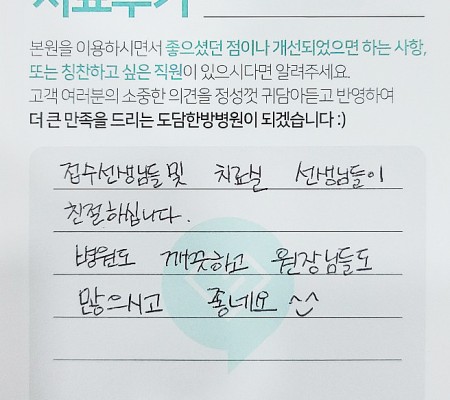 치료후기
본원을 이용하시면서 좋으셨던 점이나 개선되었으면 하는 사항,
또는 칭찬하고 싶은 직원이 있으시다면 알려주세요.
고객 여러분의 소중한 의견을 정성껏 귀담아듣고 반영하여
더 큰 만족을 드리는 도담한방병원이 되겠습니다 :)
접수선생님들 및 치료실 선생님들이
친절하십니다.
병원도 깨끗하고 원장님들도
많으시고 좋네요 ^^